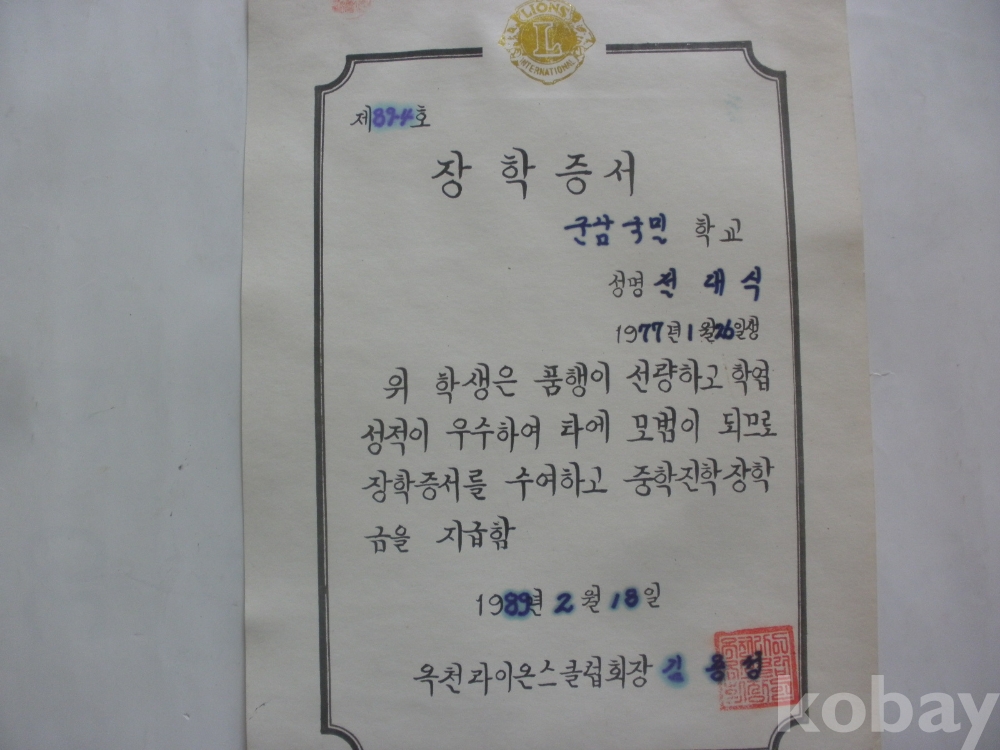 LIONS
L
INTERNATIONAL
제834호
장학증서
군남국민 학교
성명 전대식
1977년 1월 26일생
위 학생은 품행이 선량하고 학업
성적이 우수하여 타에 모범이 되므로
장학증서를 수여하고 중학진학장학
금을 지급함
1989년 2월 18일
옥천라이온스클럽회장 김용성
kobay